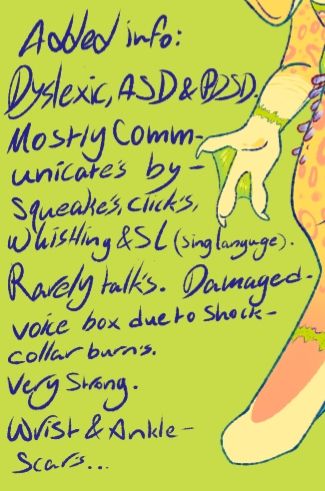 Added info:
Dyslexic, ASD & PDSD.
Mostly Comm-
unicate's by -
Squeake's, Click's,
Whistling & SL (sing languge).
Rarely talk's. Damaged-
voice box due to Shock-
collar burn's.
Very Strong.
Wrist & Ankle-
Scar's...